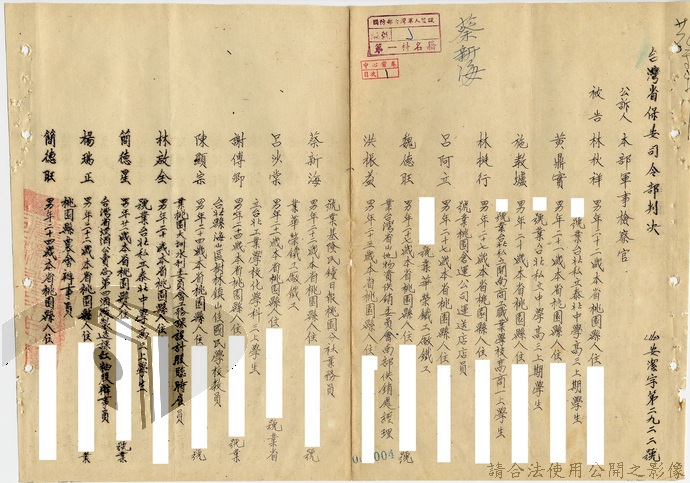 台灣省保安司令部判決
安潔字第二九二二號
公訴人 本部軍事檢察官
被告 林秋祥 男年二十一歲本省桃園縣人住
號業台北私立泰北中學高三上期學生
黃鼎實 男年二十一歲本省桃園縣人住
號業台北私立中學高三上期學生
施教爐 男年二十歲本省桃園縣人住
號業台北私立開南商工職業學校高商二上學生
林挺行 男年二十歲本省桃園縣人住
號業桃園倉運公司運送店店員
呂阿立 男年二十七歲本省桃園縣人住
號業華榮鐵工廠鐵工
魏德旺 男年二十七歲本省桃園縣人住 號
業台灣省物資供銷委員會南部供銷處經理
洪振益 男年二十五歲本省桃園縣人住
號業基隆民鐘日報桃園分社業務員
蔡新海 男年二十二歲本省桃園縣人住 號
業華榮鐵工廠鐵工
呂沙棠 男年二十二歲本省桃園縣人住 號業省
立台北工業學校化學科三上學生
謝傳卿 男年二十二歲本省桃園縣人住 號業
台北縣海山區樹林鎮山佳國民學校教員
陳顯宗 男年二十四歲本省桃園縣人住 號
林啟全 男年二十歲本省桃園縣人住
號業台北私立泰北中學高二上學生
簡德星 男年 本省桃園縣人住 號業
楊瑞正 男年二十二歲本省桃園縣人住 業
桃園縣農會科事員
簡德旺 男年二十四歲本省桃園縣人住
蔡新海
國防部
第一科名籍
004
請合法使用公開之影像